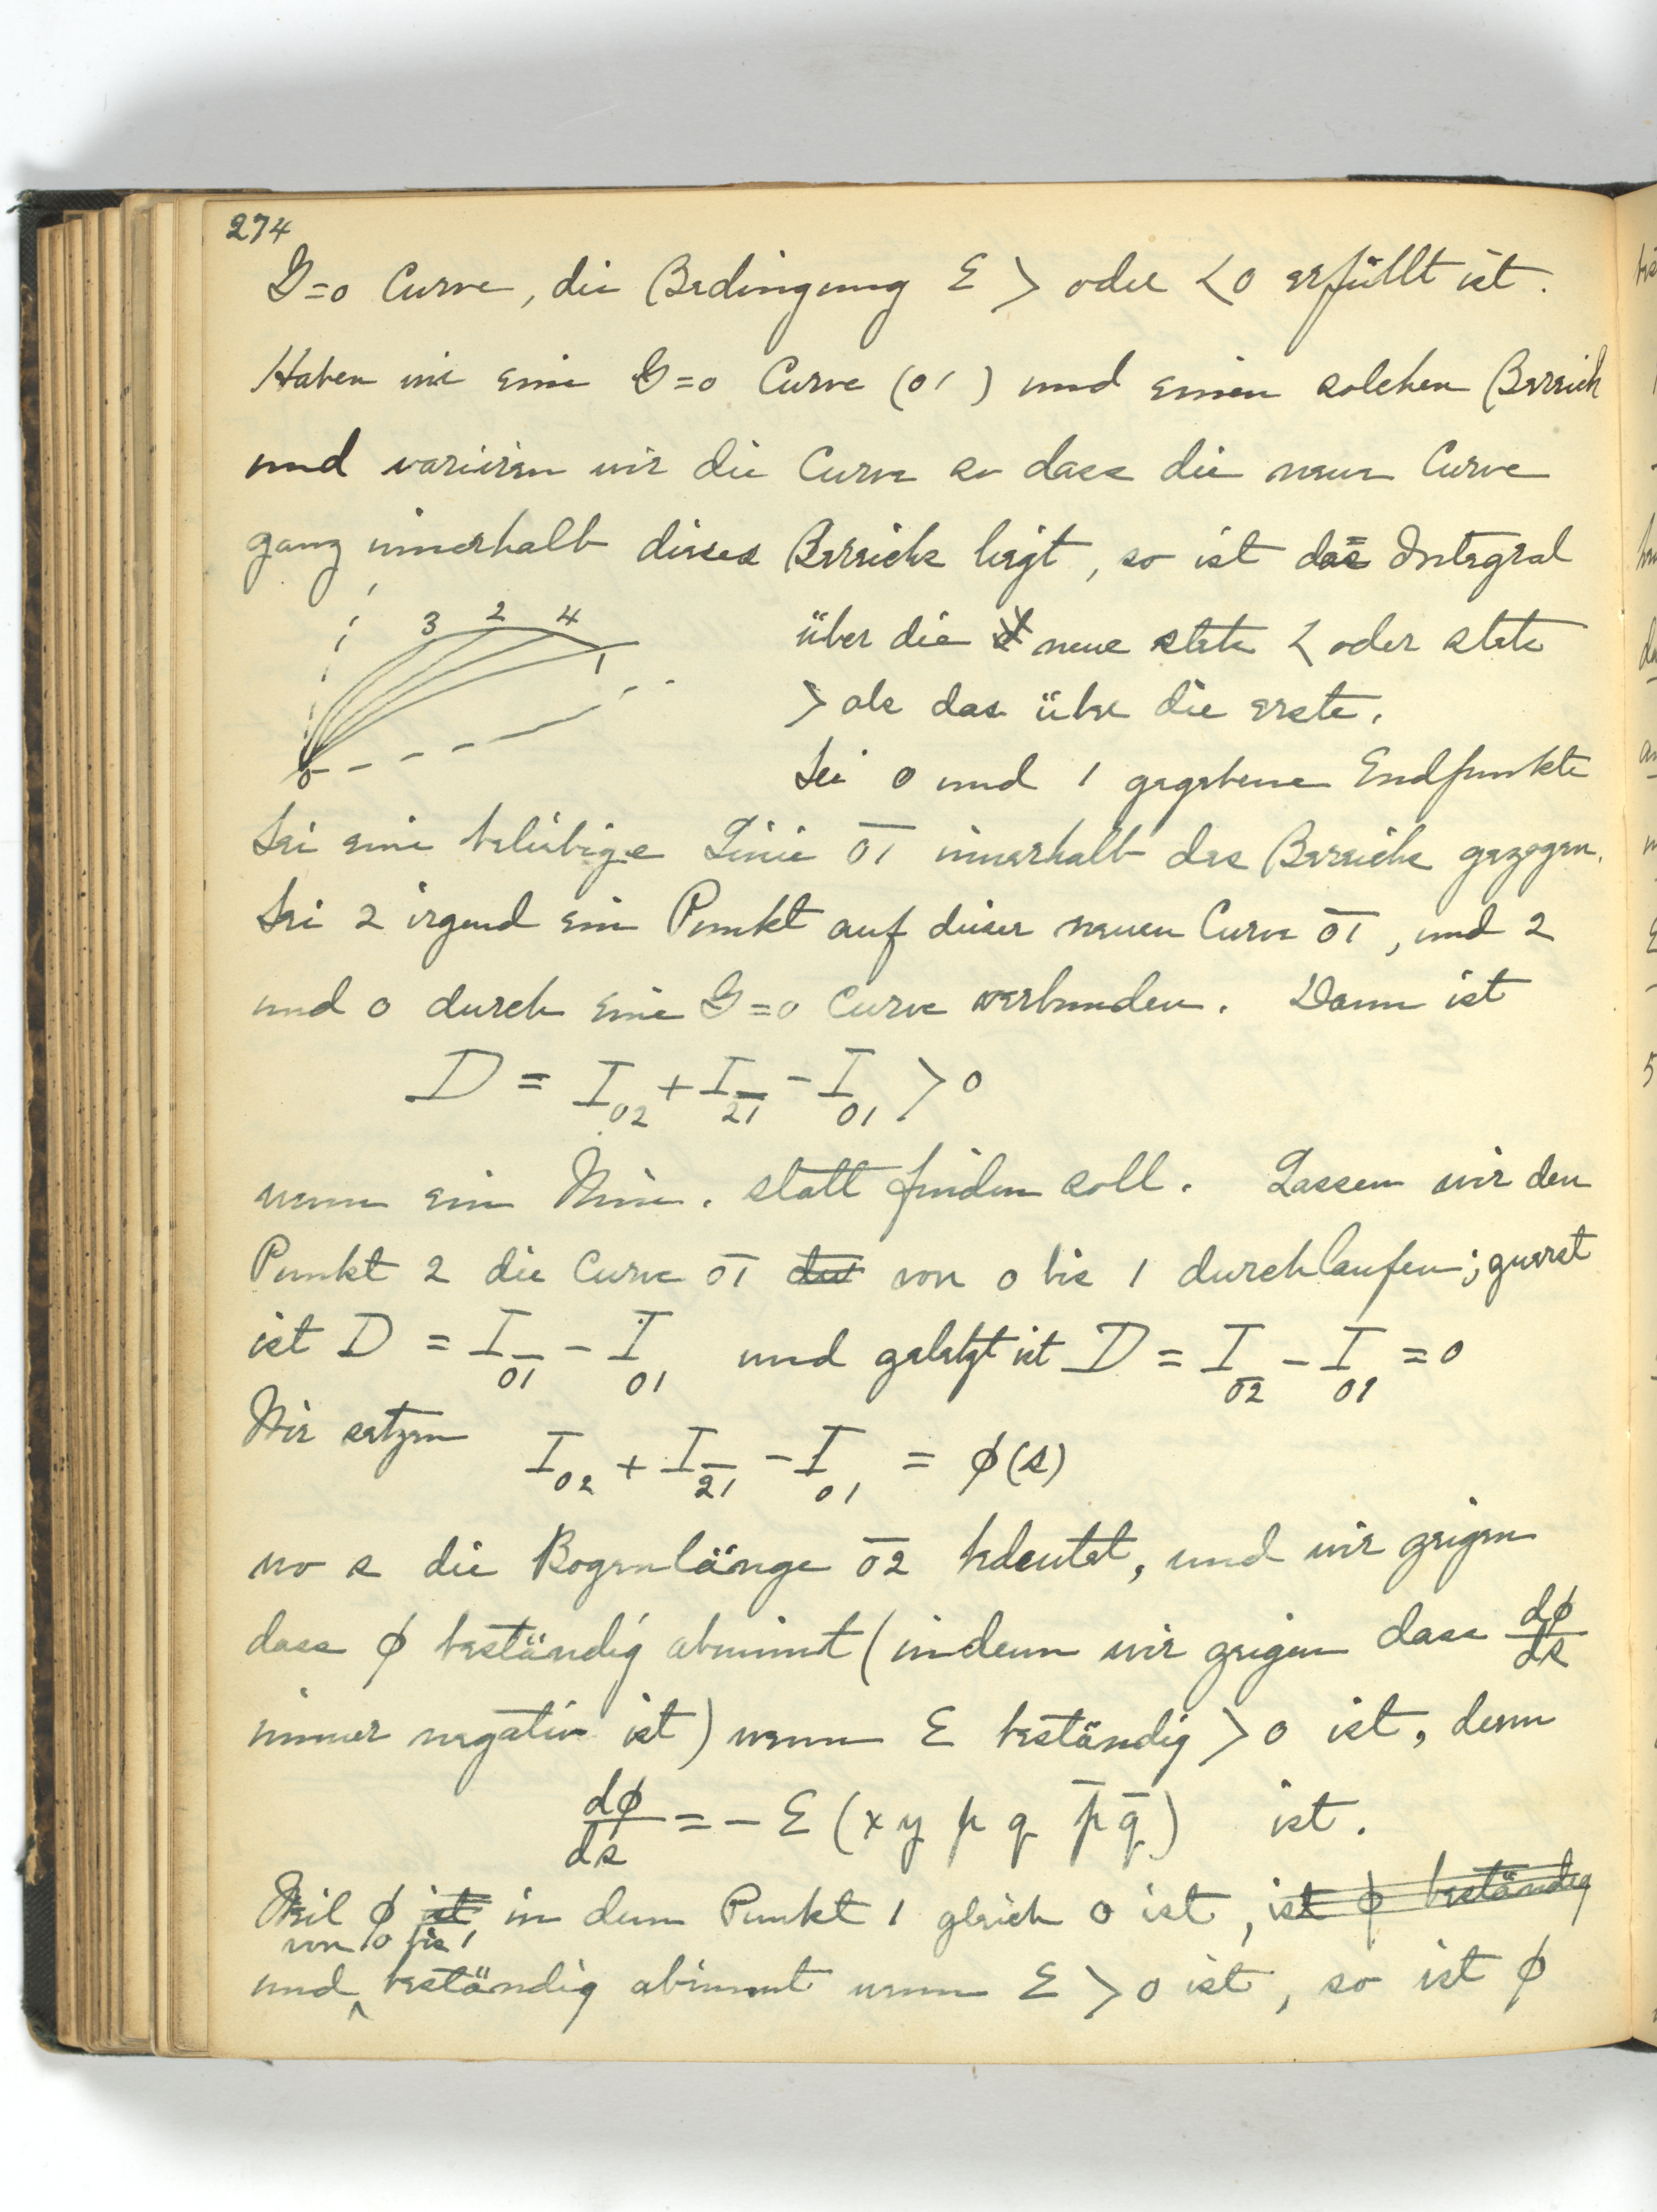 274
G=0 Curve, die Bedingung E > oder <0 erfüllt ist.
Haben wir eine G=0 Curve (01) und einen solchen Bereich
und variiren wir die Curve so dass die neue Curve
ganz innerhalb dieses Bereichs liegt, so ist das Integral
3 2 4
1
0
über die neue stets < oder stets
> als das über die erste.
Sei 0 und 1 gegebene Endpunkte
Sei eine beliebige Linie 0̅1̅ innerhalb des Bereichs gezogen.
Sei 2 irgend ein Punkt auf dieser neuen Curve 0̅1̅, und 2
und 0 durch eine G=0 Curve verbunden. Dann ist
D = I₀₂ + I_2̅1̅ - I₀₁ > 0
wenn ein Min. statt finden soll. Lassen wir den
Punkt 2 die Curve 0̅1̅ von 0 bis 1 durchlaufen; zuerst
ist D = I_0̅1̅ - I₀₁ und geletzt ist D = I₀₂ - I₀₁ = 0
Wir setzen
I₀₂ + I_2̅1̅ - I₀₁ = ϕ(s)
wo s die Bogenlänge 0̅2̅ bedeutet, und wir zeigen
dass ϕ beständig abnimmt (indem wir zeigen dass dϕ/ds
immer negativ ist) wenn E beständig > 0 ist, denn
dϕ/ds = - E (x y p q p̅ q̅) ist.
Weil ϕ ist in dem Punkt 1 gleich 0 ist, ist ϕ beständig
von 0 bis 1
und beständig abnimmt wenn E > 0 ist, so ist ϕ